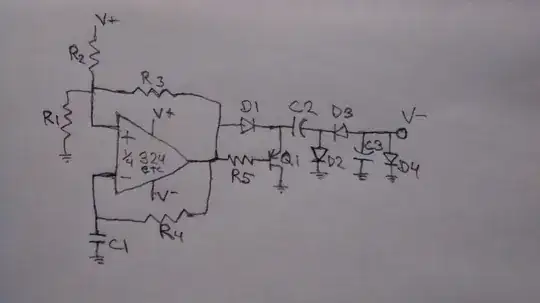 V+
R2
R3
R1
V+
D1
C2
D3
V-
+
1/4 324
etc
-
R5
Q1
D2
C3
D4
V-
R4
C1